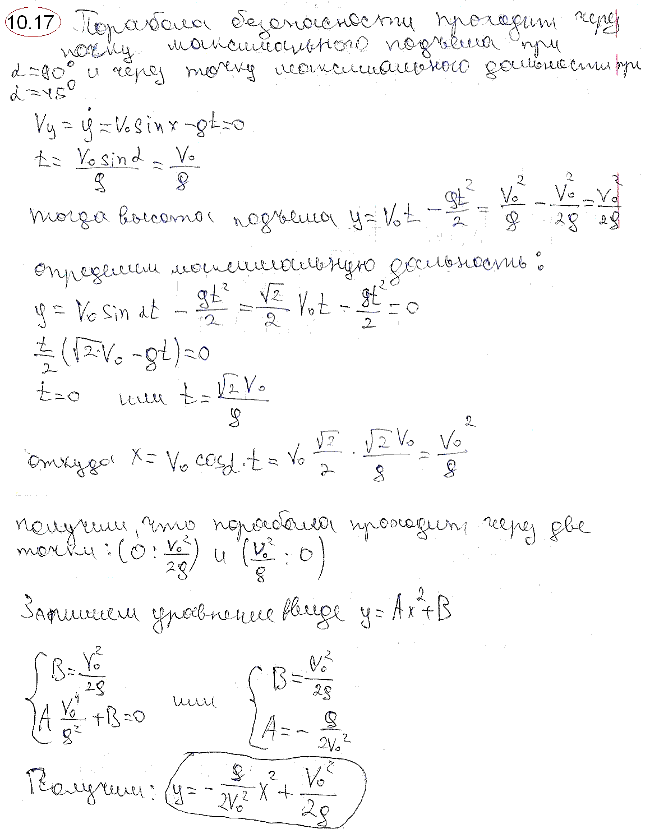 10.17 Парабола безопасности проходит через
точку максимального подъема при
α=90° и через точку максимальной дальности при
α=45°
Vy = ẏ = V₀ sin x - gt = 0
t = V₀ sin α / g = V₀ / g
тогда высота подъема y = V₀t - gt²/2 = V₀²/g - V₀²/2g = V₀²/2g
определим максимальную дальность:
y = V₀ sin αt - gt²/2 = √2/2 V₀t - gt²/2 = 0
t/2 (√2·V₀ - gt) = 0
t=0 или t = √2 V₀ / g
откуда x = V₀ cosα·t = V₀ √2/2 · √2 V₀/g = V₀²/g
получили, что парабола проходит через две
точки: (0 ; V₀²/2g) и (V₀²/g ; 0)
Запишем уравнение в виде y = Ax² + B
{ B = V₀²/2g
A V₀⁴/g² + B = 0 или { B = V₀²/2g
A = - g/2V₀²
Получим: y = - g/2V₀² x² + V₀²/2g